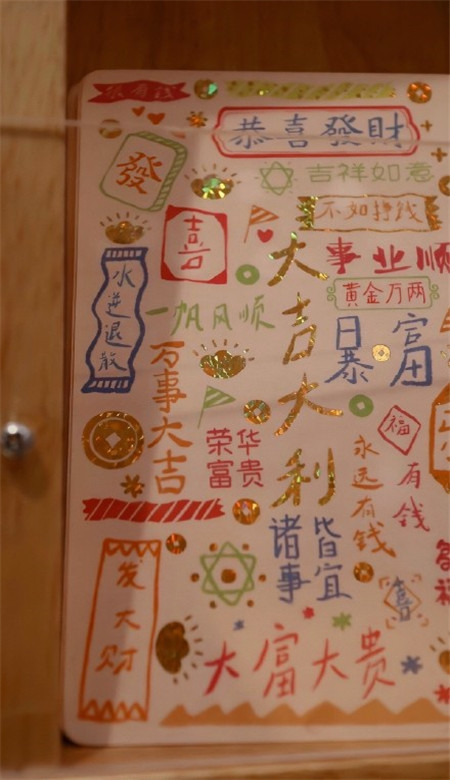 很有钱
恭喜發財
發
吉祥如意
不如挣钱
喜
大吉大利
事业顺
黄金万两
水逆退散
一帆风顺
暴富
万事大吉
福
荣华
富贵
永远有钱
有钱
诸事皆宜
发大财
喜
大富大贵